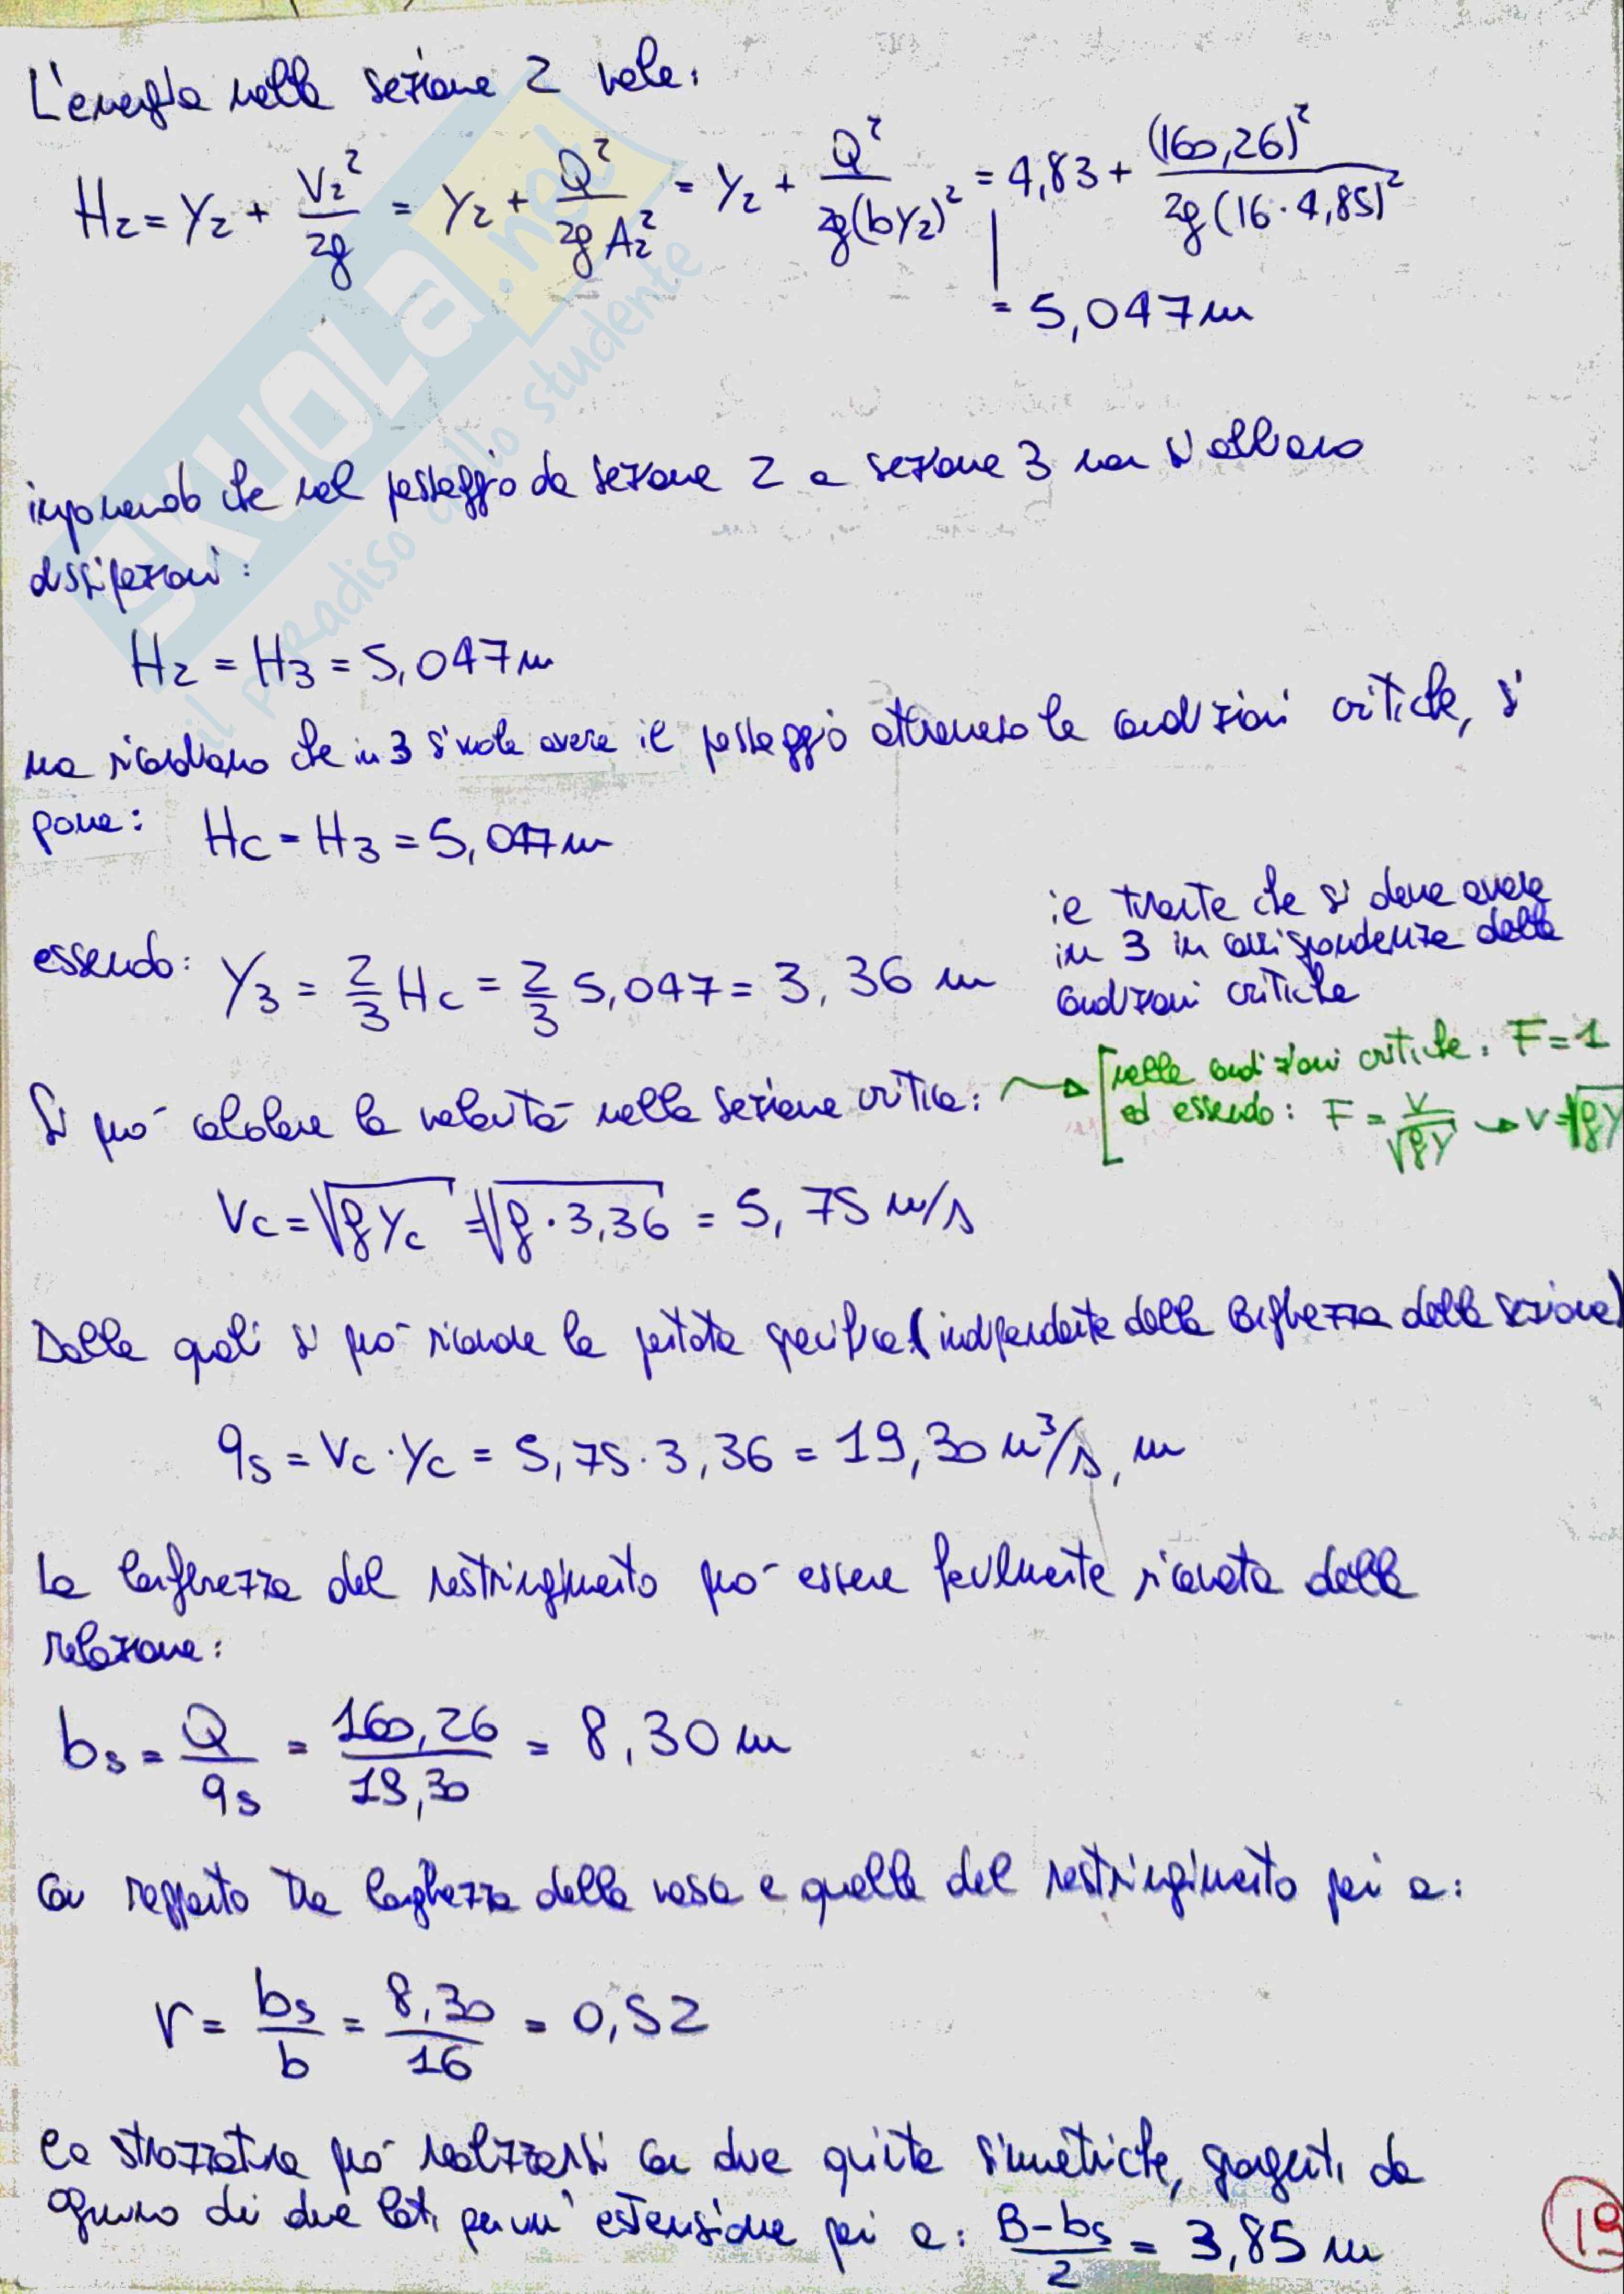 L'energia nella sezione 2 vale:
H2 = Y2 + V2²/2g = Y2 + Q²/2gA2² = Y2 + Q²/2g(bY2)² = 4,83 + (160,26)²/2g(16·4,85)²
= 5,047 m
imponendo che nel passaggio da sezione 2 a sezione 3 non si abbiano
dissipazioni:
H2 = H3 = 5,047 m
ma ricordiamo che in 3 si vuole avere il passaggio attraverso le condizioni critiche, si
pone: Hc = H3 = 5,047 m
essendo: Y3 = 2/3 Hc = 2/3 5,047 = 3,36 m
il tirante che si deve avere
in 3 in corrispondenza delle
condizioni critiche
Si può calcolare la velocità nella sezione critica:
[nelle condizioni critiche: F = 1
ed essendo: F = V/√gY → V = √gY
Vc = √gYc = √g·3,36 = 5,75 m/s
Dalla quale si può ricavare la portata specifica (indipendente dalla larghezza della sezione)
qs = Vc·Yc = 5,75·3,36 = 19,30 m³/s, m
La larghezza del restringimento può essere facilmente ricavata dalla
relazione:
bs = Q/qs = 160,26/19,30 = 8,30 m
Con rapporto tra larghezza della vasca e quella del restringimento pari a:
r = bs/b = 8,30/16 = 0,52
La strozzatura può realizzarsi con due quinte simmetriche, sporgenti da
ognuno dei due lati per un'estensione pari a: B-bs/2 = 3,85 m
19
SKUOLA.net
il paradiso dello studente